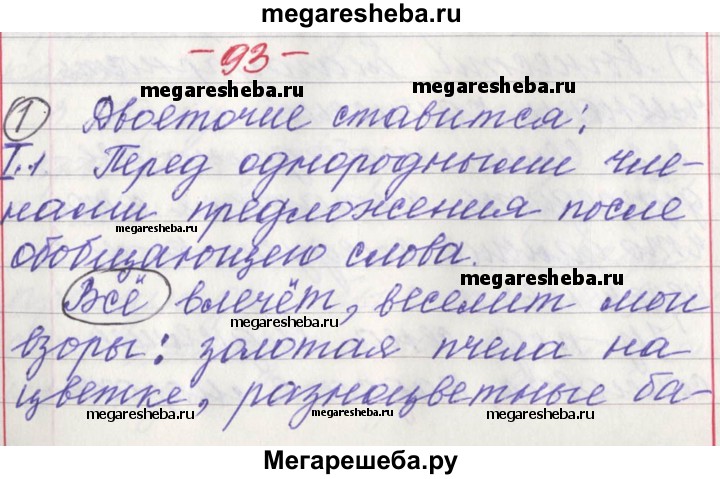 megaresheba.ru
- 93 -
megaresheba.ru megaresheba.ru
① Двоеточие ставится:
I.1. Перед однородными чле-
нами предложения после
megaresheba.ru
обобщающего слова.
megaresheba.ru
Всё влечёт, веселит мои
megaresheba.ru
взоры: золотая пчела на
цветке, разноцветные ба-
megaresheba.ru megaresheba.ru megaresheba.ru
Мегарешеба.ру